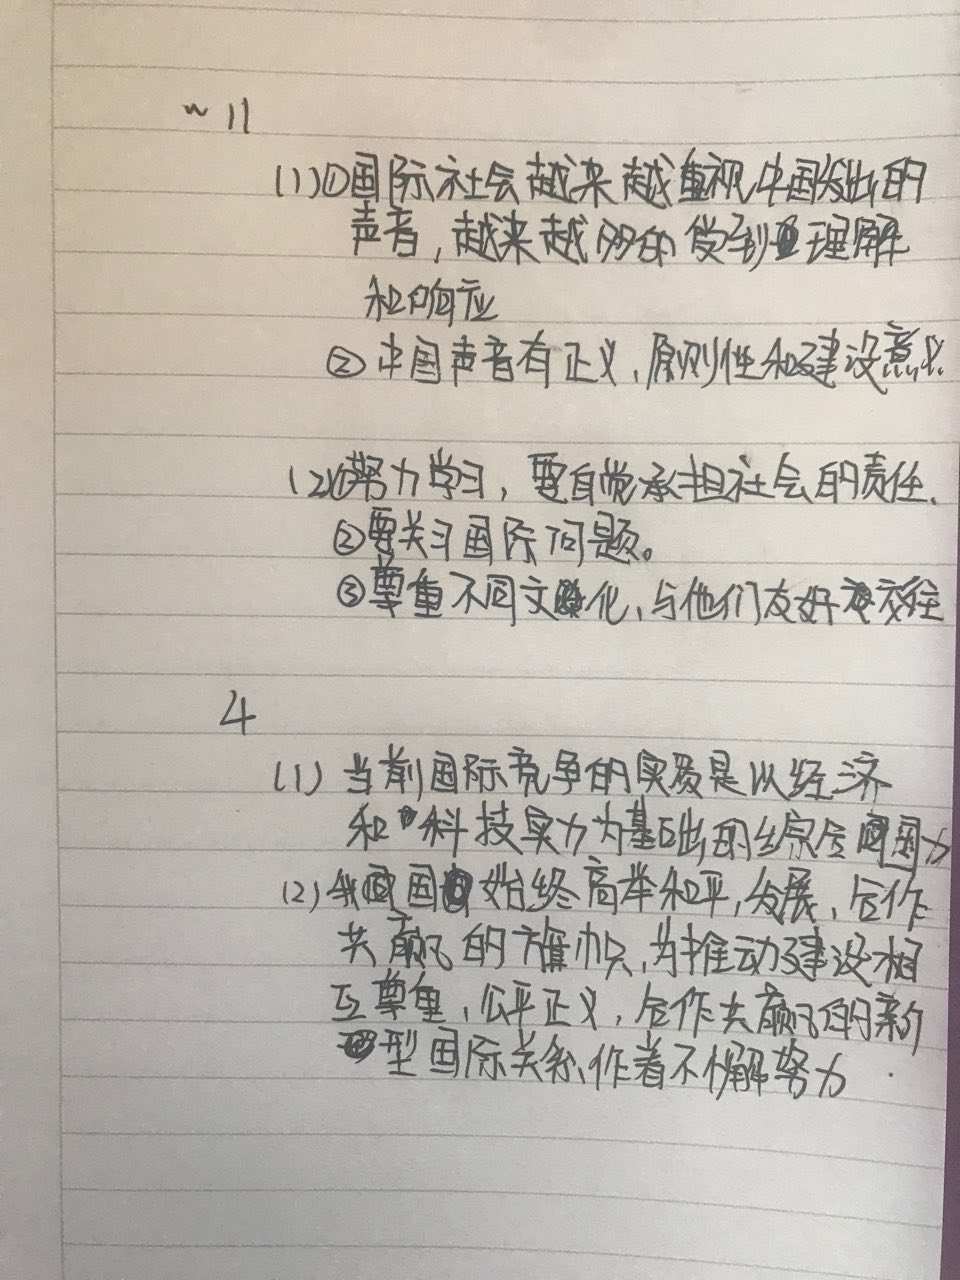 ~ 11
(1)①国际社会越来越重视中国发出的
声音,越来越多的受到理解
和响应
②中国声音有正义、原则性和建设意义.
(2)①努力学习,要自觉承担社会的责任.
②要关习国际问题。
③尊重不同文化、与他们友好交往
4
(1)当前国际竞争的实质是以经济
和科技实力为基础的综合国力
(2)我国始终高举和平,发展,合作
共赢的旗帜,为推动建设相
互尊重,公平正义,合作共赢的新
型国际关系,作着不懈努力